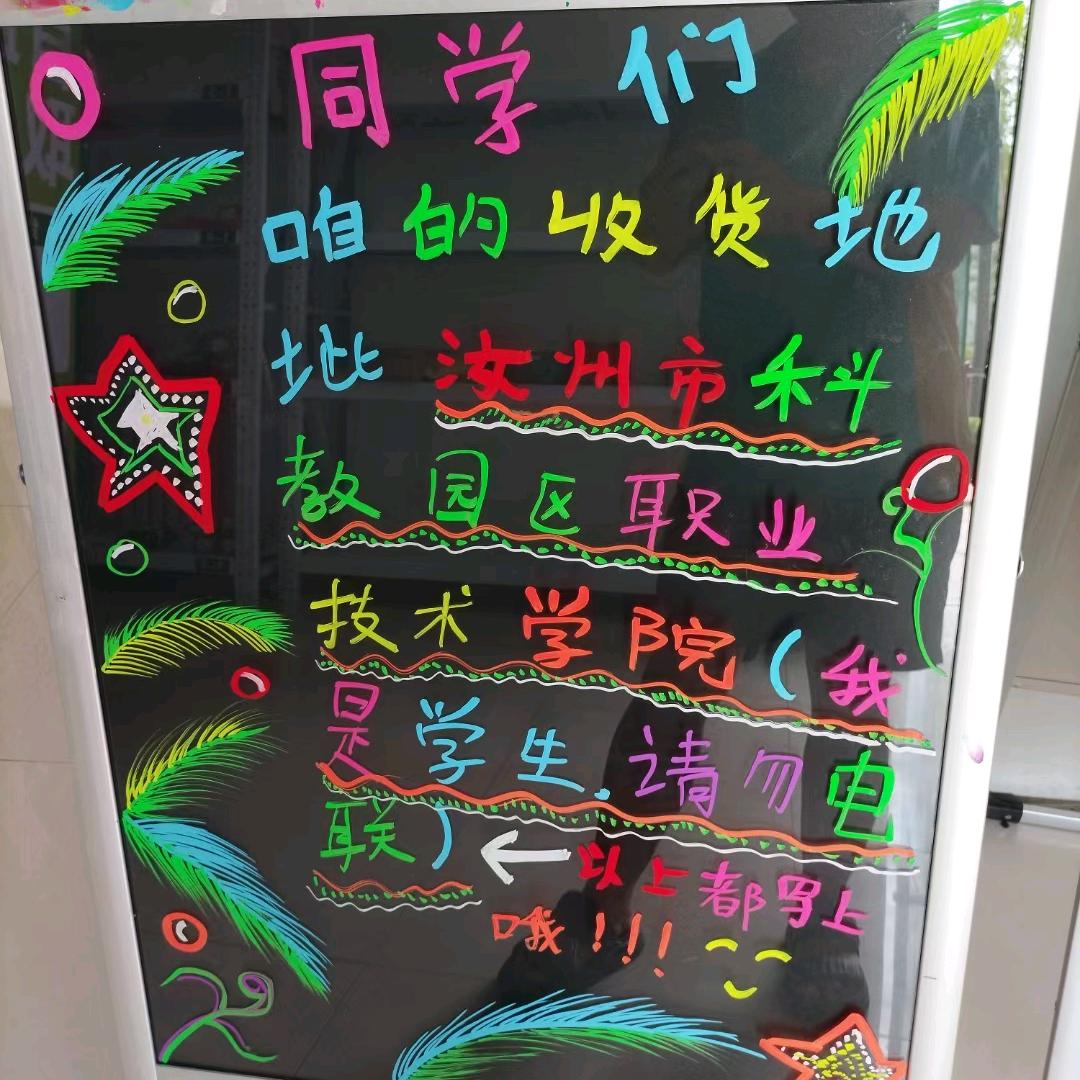 同学们
咱的收货地
址汝州市科
教园区职业
技术学院(我
是学生.请勿电
联)←以上都写上
哦!!!